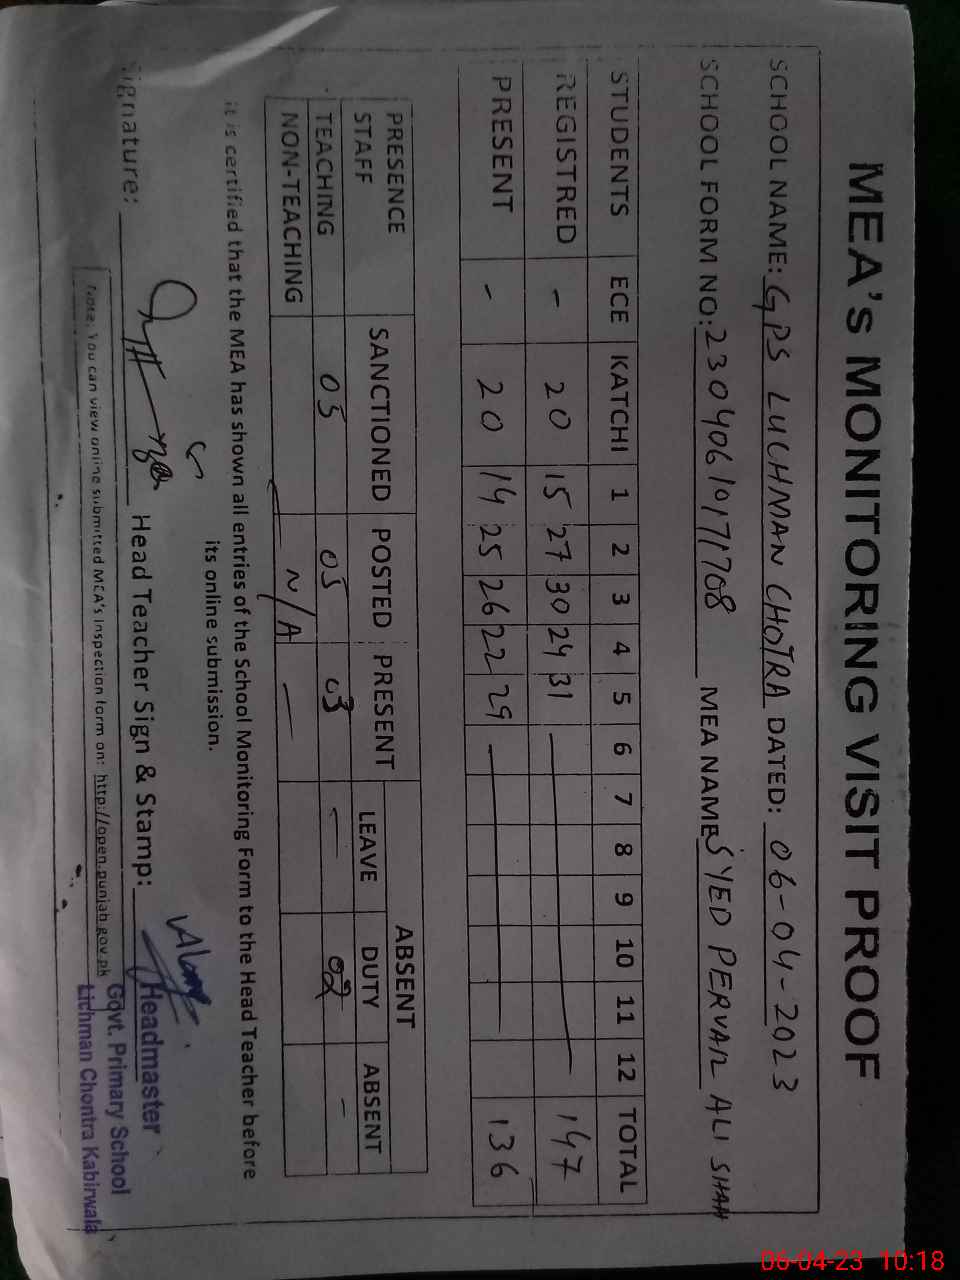 MEA's MONITORING VISIT PROOF
SCHOOL NAME: GPS LUCHMAN CHOTRA DATED: 06-04-2023
SCHOOL FORM NO: 23040610171708 MEA NAME SYED PERVAIZ ALI SHAH
STUDENTS ECE KATCHI 1 2 3 4 5 6 7 8 9 10 11 12 TOTAL
REGISTRED - 20 15 27 30 24 31 — 147
PRESENT - 20 14 25 26 22 29 — 136
PRESENCE STAFF SANCTIONED POSTED PRESENT ABSENT
LEAVE DUTY ABSENT
TEACHING 05 05 03 — 02 -
NON-TEACHING — N/A —
it is certified that the MEA has shown all entries of the School Monitoring Form to the Head Teacher before
its online submission.
Signature: Head Teacher Sign & Stamp:
Headmaster
Govt. Primary School
Lichman Chontra Kabirwala
Note: You can view online submitted MEA's Inspection form on: http://open.punjab.gov.pk
06-04-23 10:18